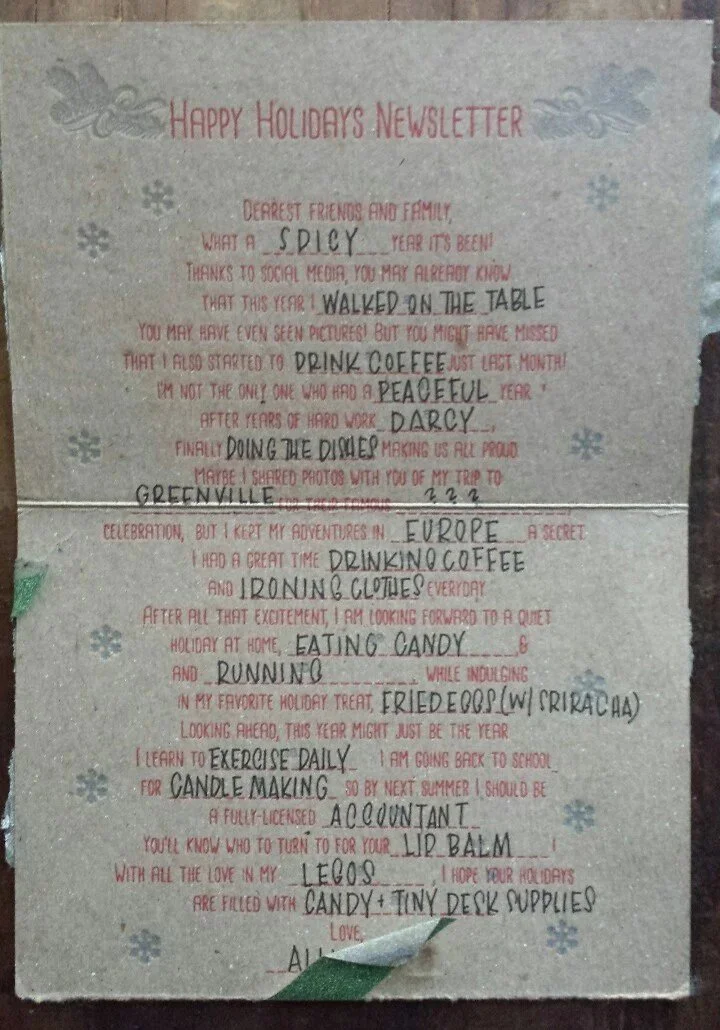 HAPPY HOLIDAYS NEWSLETTER
DEAREST FRIENDS AND FAMILY,
WHAT A SPICY YEAR IT'S BEEN!
THANKS TO SOCIAL MEDIA, YOU MAY ALREADY KNOW
THAT THIS YEAR I WALKED ON THE TABLE
YOU MAY HAVE EVEN SEEN PICTURES! BUT YOU MIGHT HAVE MISSED
THAT I ALSO STARTED TO DRINK COFFEE JUST LAST MONTH!
I'M NOT THE ONLY ONE WHO HAD A PEACEFUL YEAR
AFTER YEARS OF HARD WORK DARCY,
FINALLY DOING THE DISHES MAKING US ALL PROUD
MAYBE I SHARED PHOTOS WITH YOU OF MY TRIP TO
GREENVILLE FOR THEIR FAMOUS ? ? ?
CELEBRATION, BUT I KEPT MY ADVENTURES IN EUROPE A SECRET.
I HAD A GREAT TIME DRINKING COFFEE
AND IRONING CLOTHES EVERYDAY
AFTER ALL THAT EXCITEMENT, I AM LOOKING FORWARD TO A QUIET
HOLIDAY AT HOME, EATING CANDY &
AND RUNNING WHILE INDULGING
IN MY FAVORITE HOLIDAY TREAT, FRIED EGGS (W/ SRIRACHA)
LOOKING AHEAD, THIS YEAR MIGHT JUST BE THE YEAR
I LEARN TO EXERCISE DAILY I AM GOING BACK TO SCHOOL
FOR CANDLE MAKING SO BY NEXT SUMMER I SHOULD BE
A FULLY-LICENSED ACCOUNTANT
YOU'LL KNOW WHO TO TURN TO FOR YOUR LIP BALM !
WITH ALL THE LOVE IN MY LEGOS, I HOPE YOUR HOLIDAYS
ARE FILLED WITH CANDY + TINY DESK SUPPLIES
LOVE,